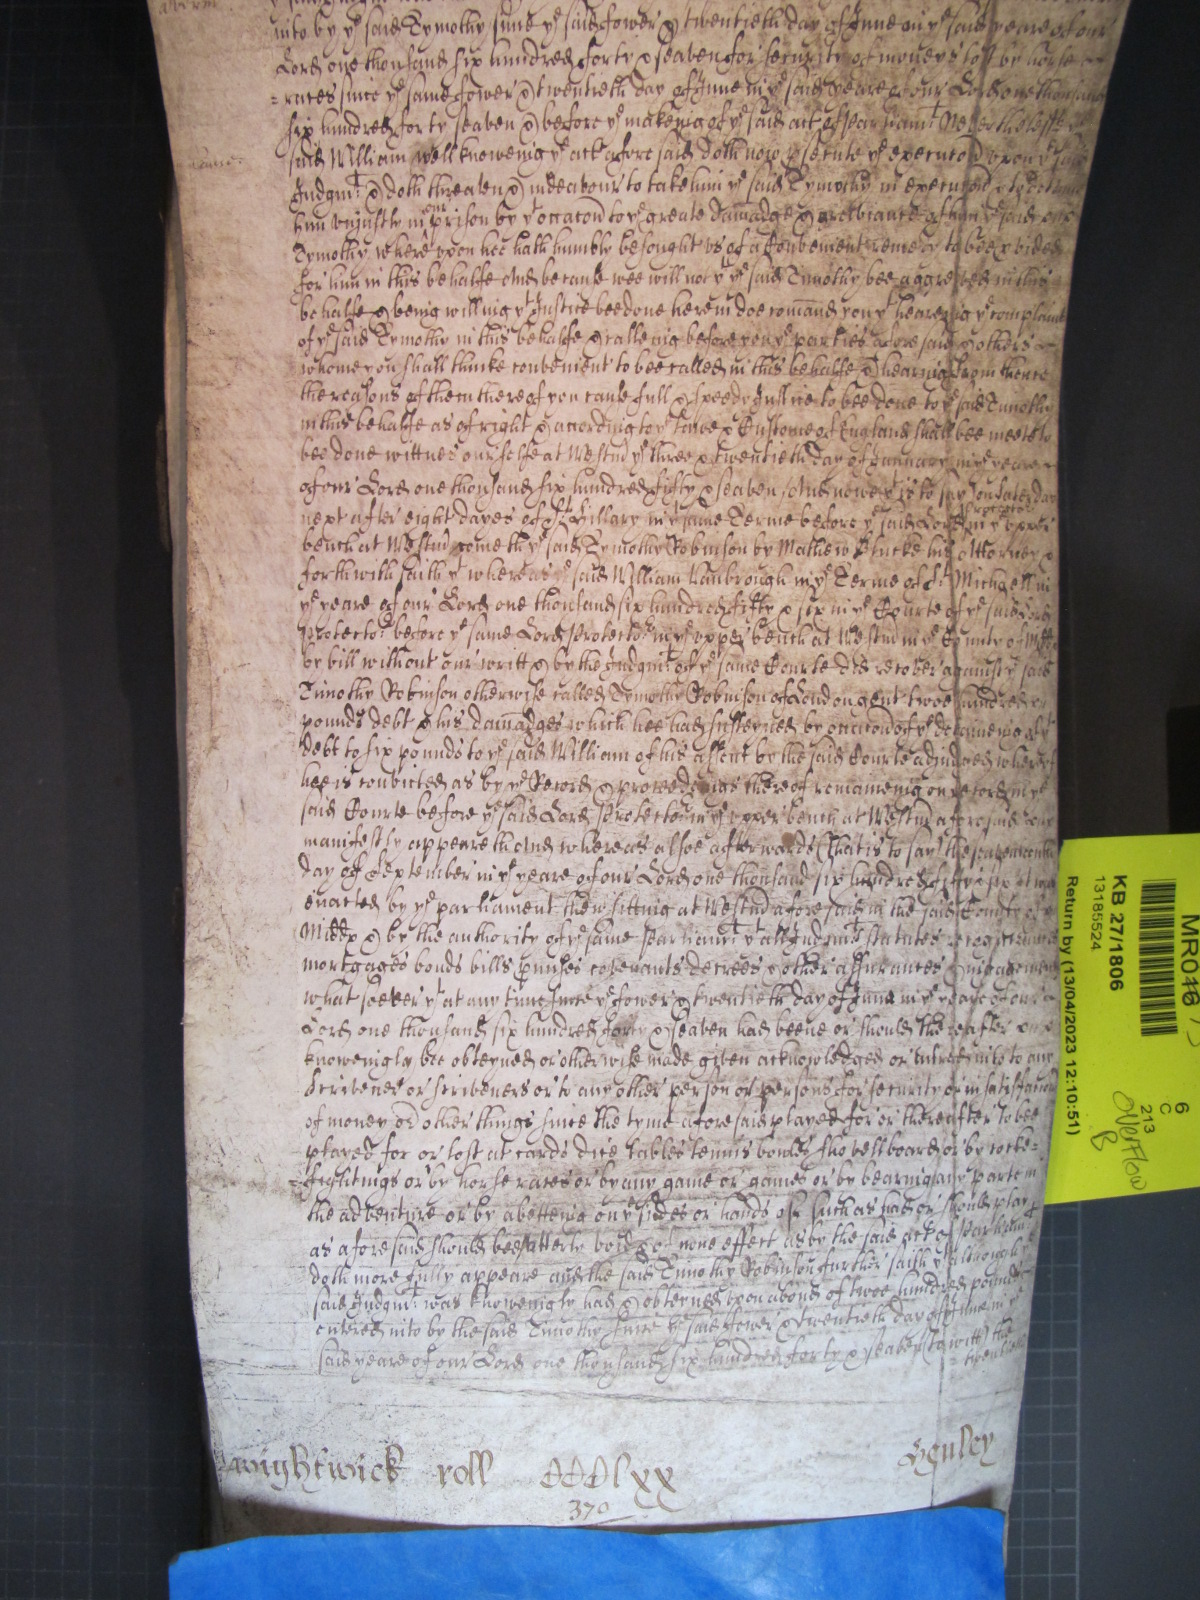 into by ye said Tymothy since ye said fower & twentieth day of June in ye said yeare of our
Lord one thousand six hundred forty & seaven for security of moneys lost by horse
= races since ye same fower & twentieth day of June in ye said yeare of our Lord one thousand
six hundred forty seaven & before ye makeing of ye said act of Parliamt Neverthelesse
said William well knoweing ye act aforesaid doth now psecute ye execucon upon ye said
Judgmt & doth threaten & indeavour to take him ye said Tymothy in execucon &
him unjustly in our prison by yt occacon to ye greate damadge & greivance of him ye said
Tymothy where upon hee hath humbly besought us of a Convenient remedy to bee pvided
for him in this behalfe And because wee will not yt ye said Timothy bee aggreived in this
behalfe & being willing yt Justice bee done herein doe comand you yt heareing ye complaint
of ye said Tymothy in this behalfe & calleing before you ye parties aforesaid & others
whome you shall thinke convenient to bee called in this behalfe & hearing from thence
the reasons of them thereof you cause full & speedy Justice to bee done to ye said Timothy
in this behalfe as of right & according to ye lawe & Custome of England shall bee meete to
bee done wittnes our selfe at Westmr ye three & twentieth day of January in ye yeare
of our Lord one thousand six hundred fifty & seaven And nowe yt is to say on Saterday
next after eight dayes of St Hillary in ye same Terme before ye said Lord Protector in ye upper
bench at Westmr cometh ye said Tymothy Robinson by Mathew his Attorney &
forthwith saith yt whereas ye said William Vanbrough in ye Terme of St Michaell in
ye yeare of our Lord one thousand six hundred fifty & six in ye Courte of ye said Lord
Protector before ye same Lord Protector in ye upper bench at Westmr in ye County of Middx
by bill without our writt & by the Judgmt of ye same Courte did recover against ye said
Timothy Robinson otherwise called Tymothy Robinson of London gent twoe hundred
pounds debt & his damadges which hee had susteyned by occacon of ye deteyneing of yt
debt to six pounds to ye said William of his assent by the said Courte adjudged whereof
hee is convicted as by ye Record & proceedings thereof remaineing on record in ye
said Courte before ye said Lord Protector in ye upper bench at Westmr aforesaid
manifestly appeareth And whereas alsoe afterwards (that is to say) the seaventeenth
day of September in ye yeare of our Lord one thousand six hundred fifty & six it was
enacted by ye parliament then sitting at Westmr aforesaid in the said County of
Middx & by the authority of ye same Parliamt yt all Judgmts statutes recognizances
mortgages bonds bills pmises covenants decrees & other assurances
what soever yt at any time since ye fower & twentieth day of June in ye yeare of our
Lord one thousand six hundred forty & seaven had beene or should thereafter
knoweingly bee obteyned or otherwise made given acknowledged or entred into to any
Scrivener or scriveners or to any other person or persons for security or in satisfaccon
of money or other things since the tyme aforesaid played for or thereafter to bee
played for or lost at cards dice tables tennis bowles shovellboard or by cocke=
= fightings or by horse races or by any game or games or by bearing any parte in
the adventure or by abetting on ye sides or hands of such as had or should play
as aforesaid should bee utterly voyd & of none effect as by the said act of Parliamt
doth more fully appeare and the said Timothy Robinson further saith yt although ye
said Judgmt was knoweingly had & obteyned upon a bond of twoe hundred pounds
entered into by the said Timothy since ye said fower & twentieth day of June in ye
said yeare of our Lord one thousand six hundred forty & seaven (to witt) the
= twentieth
Wightwick roll CCClxx Henley
370
MR046
KB 27/1806
13185524
Return by (13/04/2023 12:10:51)
6
C
213
Overflow
B